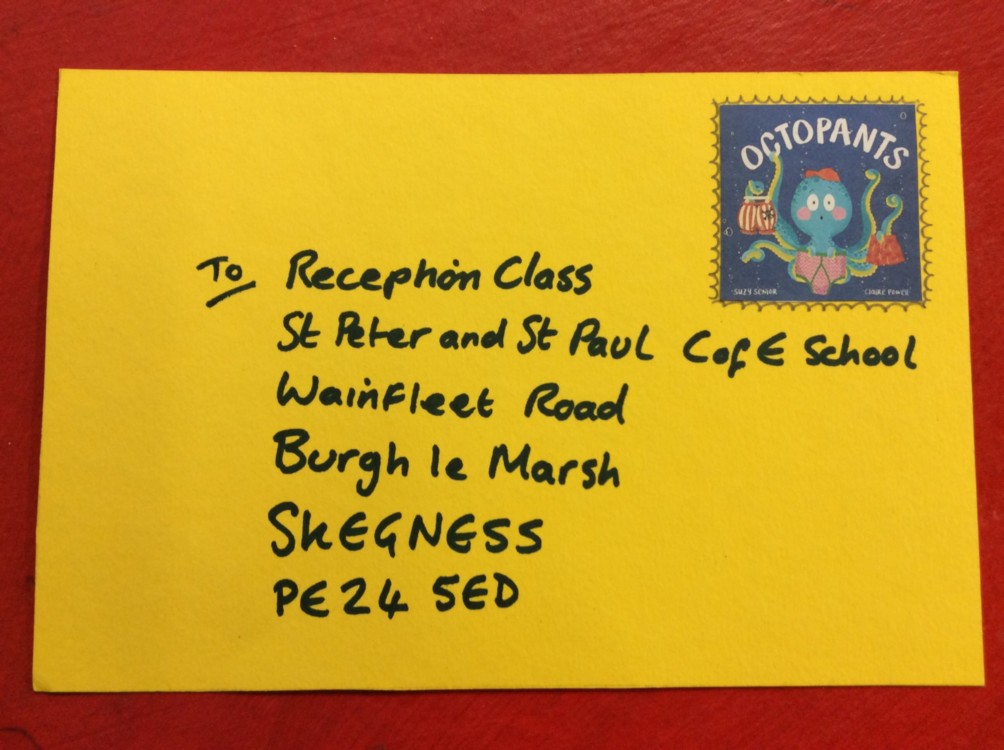 OCTOPANTS
SUZY SENIOR
CLAIRE POWELL
To Reception Class
St Peter and St Paul C of E School
Wainfleet Road
Burgh le Marsh
SKEGNESS
PE24 5ED